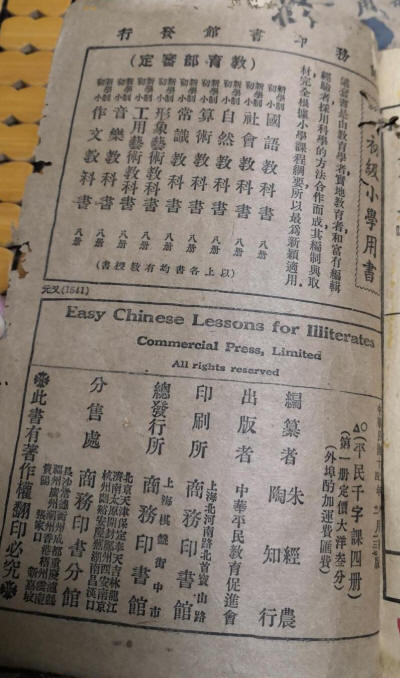 務印書館發行
(教育部審定)
初級小學用書
這套書是由教育學者,實地教育者,和富有編輯
經驗者採用科學的方法合作而成其編制與取
材完全根據小學課程綱要所以最為新穎適用.
新學制初小 國語教科書 八册
新學制初小 社會教科書 八册
新學制初小 自然教科書 八册
新學制初小 算術教科書 八册
新學制初小 常識教科書 八册
新學制初小 形象藝術教科書 八册
新學制初小 工用藝術教科書 八册
新學制初小 音樂教科書 八册
新學制初小 作文教科書 八册
(以上各書均有教授書)
元又(1541)
Easy Chinese Lessons for Illiterates
Commercial Press, Limited
All rights reserved
○平民千字課四册
(第一册定價大洋叁分)
(外埠酌加運費匯費)
編纂者 朱經農 陶知行
出版者 中華平民教育促進會
印刷所 上海河南路北首寶山路 商務印書館
總發行所 上海棋盤街中市 商務印書館
分售處 商務印書分館
北京天津保定奉天吉林龍江
濟南太原開封鄭州西安南京
杭州蘭谿安慶蕪湖南昌漢口
長沙常德衡州成都重慶瀘縣
福州廣州潮州香港梧州雲南
貴陽 張家口 新嘉坡
※此書有著作權翻印必究※